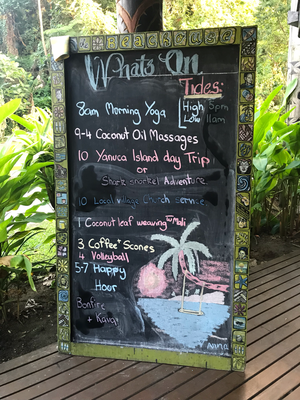 Beachcomber
What's On
Tides:
8am Morning Yoga
High 5pm
Low 11am
9-4 Coconut Oil Massages
10 Yanuca Island day Trip
or
Shark snorkel Adventure
10 Local village Church service
1 Coconut leaf weaving w/ Mali
3 Coffee + Scones
4 Volleyball
5-7 Happy
Hour
Bonfire
+ Kava
Anna